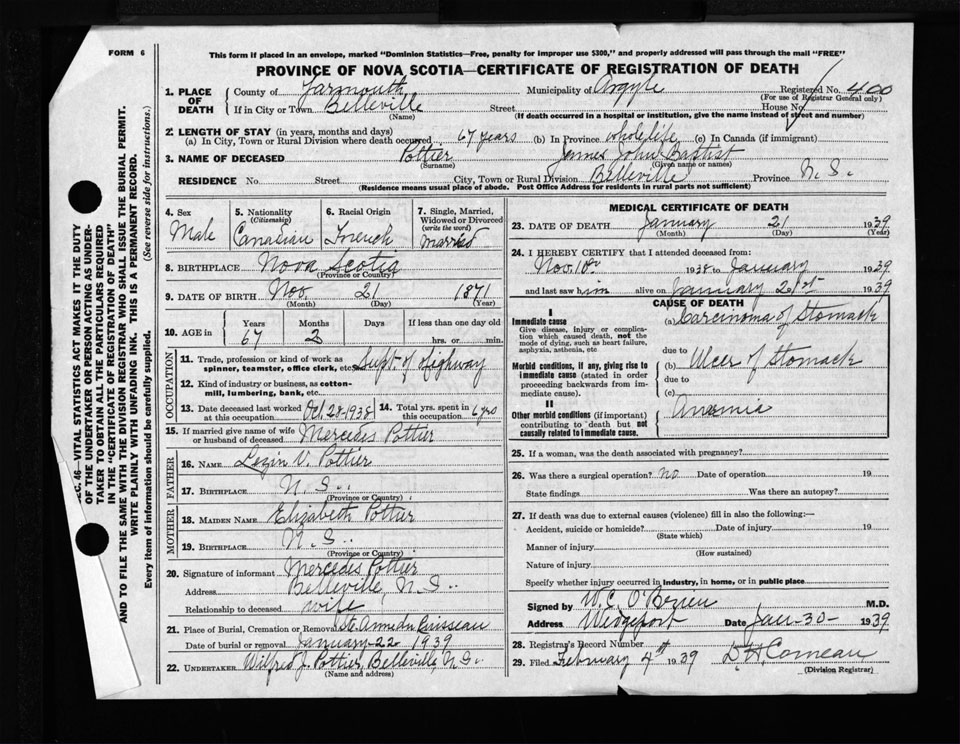 FORM 6
This form if placed in an envelope, marked "Dominion Statistics—Free, penalty for improper use $300," and properly addressed will pass through the mail "FREE"
PROVINCE OF NOVA SCOTIA—CERTIFICATE OF REGISTRATION OF DEATH
1. PLACE OF DEATH County of Yarmouth Municipality of Argyle Registered No. 400
(For use of Registrar General only)
If in City or Town Belleville Street House No.
(Name) (If death occurred in a hospital or institution, give the name instead of street and number)
2. LENGTH OF STAY (in years, months and days)
(a) In City, Town or Rural Division where death occurred 67 years (b) In Province whole life (c) In Canada (if immigrant)
3. NAME OF DECEASED Pottier James John Baptist
(Surname) (Given name or names)
RESIDENCE No. Street City, Town or Rural Division Belleville Province N.S.
(Residence means usual place of abode. Post Office Address for residents in rural parts not sufficient)
4. Sex Male
5. Nationality (Citizenship) Canadian
6. Racial Origin French
7. Single, Married, Widowed or Divorced (write the word) Married
8. BIRTHPLACE Nova Scotia
(Province or Country)
9. DATE OF BIRTH Nov. 21 1871
(Month) (Day) (Year)
10. AGE in Years Months Days If less than one day old
67 2 hrs. or min.
OCCUPATION
11. Trade, profession or kind of work as spinner, teamster, office clerk, etc. Supt. of Highway
12. Kind of industry or business, as cotton-mill, lumbering, bank, etc.
13. Date deceased last worked at this occupation Oct 28-1938 14. Total yrs. spent in this occupation 6 yrs
15. If married give name of wife or husband of deceased Mercedes Pottier
FATHER
16. NAME Lezin V. Pottier
17. BIRTHPLACE N.S.
(Province or Country)
MOTHER
18. MAIDEN NAME Elizabeth Pottier
19. BIRTHPLACE N.S.
(Province or Country)
20. Signature of informant Mercedes Pottier
Address Belleville, N.S.
Relationship to deceased wife
21. Place of Burial, Cremation or Removal Ste Anne du Ruisseau
Date of burial or removal January-22 1939
22. UNDERTAKER Wilfred J. Pottier, Belleville N.S.
(Name and address)
MEDICAL CERTIFICATE OF DEATH
23. DATE OF DEATH January 21 1939
(Month) (Day) (Year)
24. I HEREBY CERTIFY that I attended deceased from:
Nov. 10th 1938 to January 1939
and last saw him alive on January 21st 1939
CAUSE OF DEATH
I
Immediate cause (a) Carcinoma of Stomack
Give disease, injury or complication which caused death, not the mode of dying, such as heart failure, asphyxia, asthenia, etc
due to
Morbid conditions, if any, giving rise to immediate cause (stated in order proceeding backwards from immediate cause). (b) Ulcer of Stomack
due to
(c)
II
Other morbid conditions (if important) contributing to death but not causally related to immediate cause. Anemia
25. If a woman, was the death associated with pregnancy?
26. Was there a surgical operation? no Date of operation 19
State findings Was there an autopsy?
27. If death was due to external causes (violence) fill in also the following:—
Accident, suicide or homicide? Date of injury 19
(State which)
Manner of injury
(How sustained)
Nature of injury
Specify whether injury occurred in industry, in home, or in public place
Signed by W. C. O'Brien M.D.
Address Wedgeport Date Jan-30- 1939
28. Registrar's Record Number
29. Filed February 4th 1939 D H Comeau
(Division Registrar)
SEC. 46—VITAL STATISTICS ACT MAKES IT THE DUTY
OF THE UNDERTAKER OR PERSON ACTING AS UNDER-
TAKER TO OBTAIN ALL THE PARTICULARS REQUIRED
IN THE "CERTIFICATE OF REGISTRATION OF DEATH"
AND TO FILE THE SAME WITH THE DIVISION REGISTRAR WHO SHALL ISSUE THE BURIAL PERMIT.
WRITE PLAINLY WITH UNFADING INK. THIS IS A PERMANENT RECORD.
Every item of information should be carefully supplied. (See reverse side for instructions.)